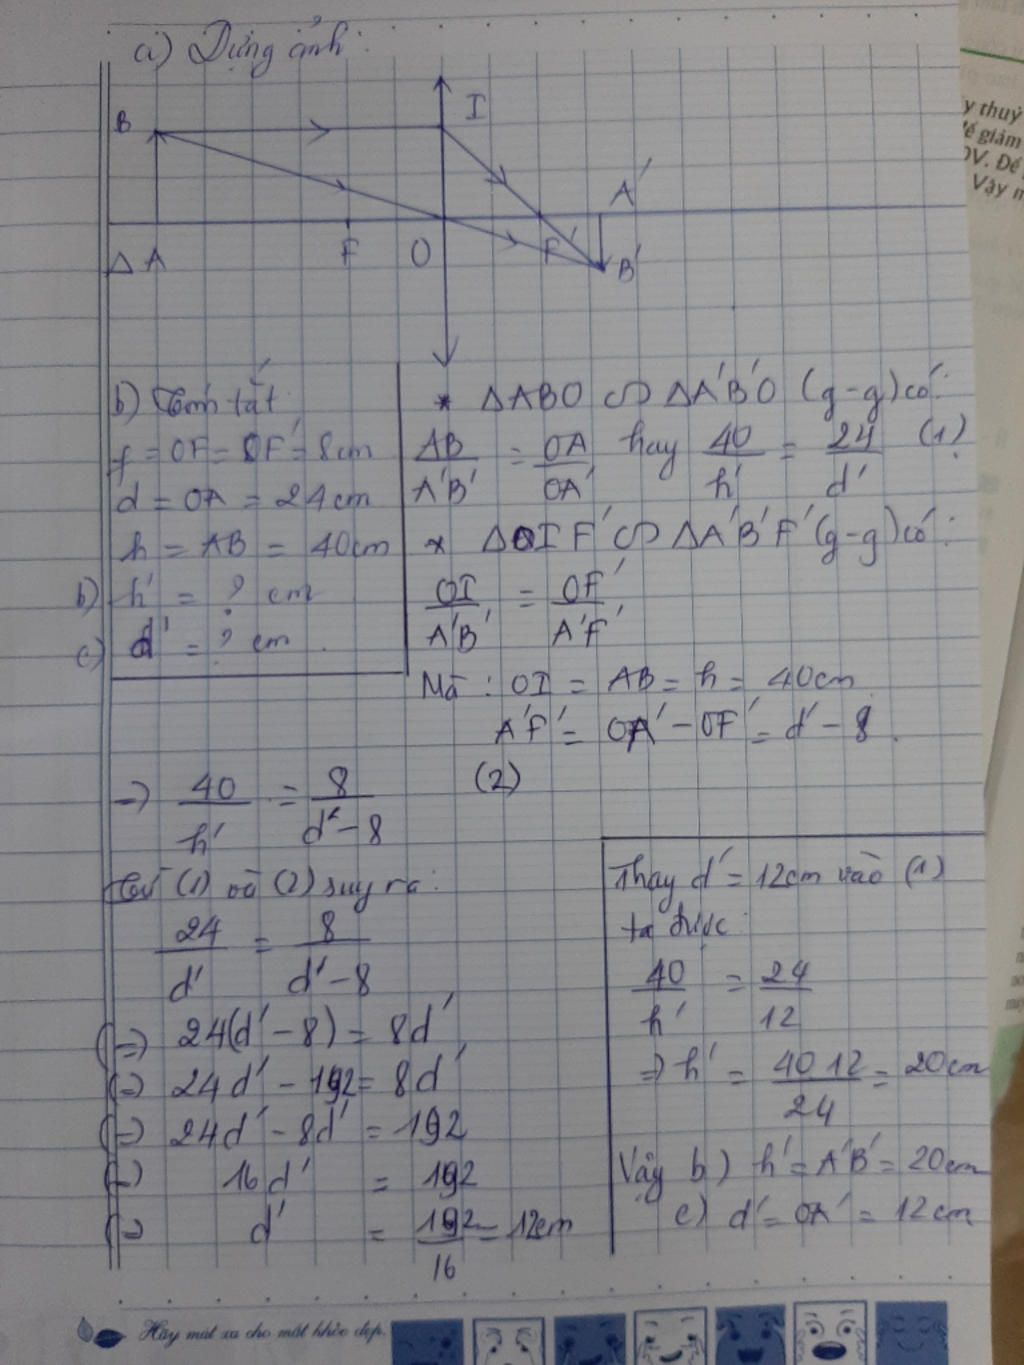 a) Dựng ảnh:
B I
A'
Δ A F O F' B'
b) Tóm tắt
f = OF = OF' = 8cm
d = OA = 24cm
h = AB = 40cm
b) h' = ? cm
c) d' = ? cm.
* ΔABO ∽ ΔA'B'O (g-g) có:
AB/A'B' = OA/OA' hay 40/h' = 24/d' (1)
* ΔOIF' ∽ ΔA'B'F' (g-g) có:
OI/A'B' = OF'/A'F'
Mà : OI = AB = h = 40cm
A'F' = OA' - OF' = d' - 8.
=> 40/h' = 8/d'-8 (2)
Từ (1) và (2) suy ra:
24/d' = 8/d'-8
(=) 24(d'-8) = 8d'
(=) 24d' - 192 = 8d'
(=) 24d' - 8d' = 192
(=) 16d' = 192
(=) d' = 192/16 = 12cm
Thay d' = 12cm vào (1)
ta được:
40/h' = 24/12
=> h' = 40.12/24 = 20cm
Vậy b) h' = A'B' = 20cm
c) d' = OA' = 12cm
y thuỷ
để giảm
0V. Để
Vậy
Hãy mát xa cho mắt khỏe đẹp.